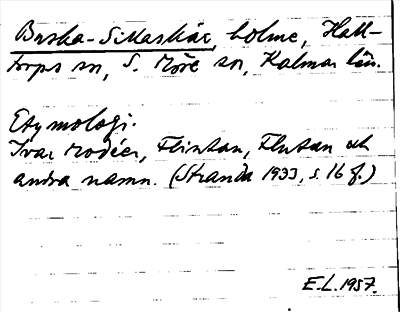 Buska-Sillaskär, holme, Hall-
torps sn, S. Möre sn, Kalmar län.
Etymologi.
Ivar Modéer, Flintan, Flutan och
andra namn. (Stranda 1933, s. 16 f.)
E.L. 1957.